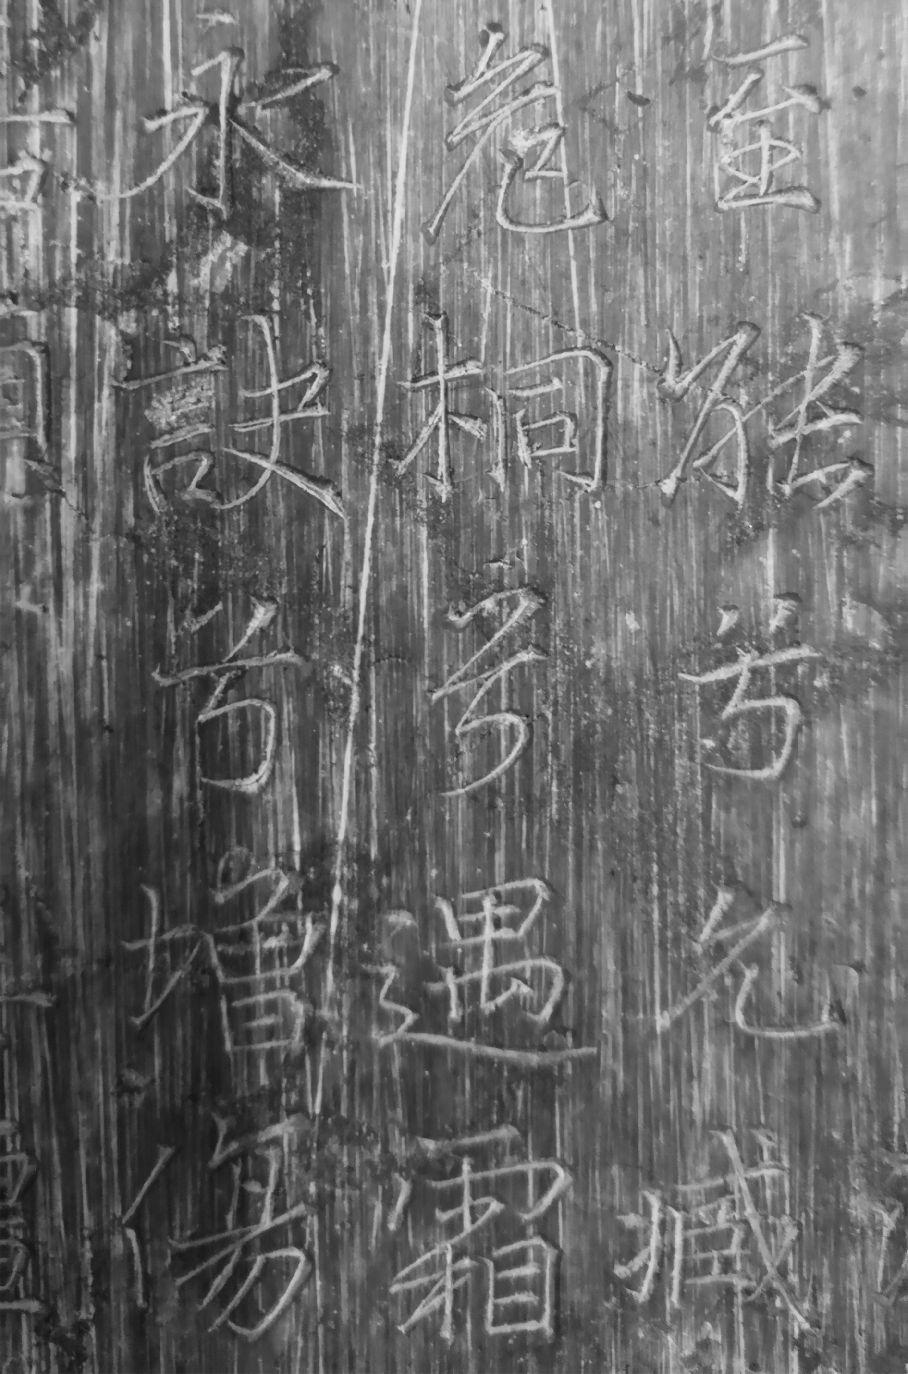 至兮允臧
危桐兮遇霜
永訣兮增傷